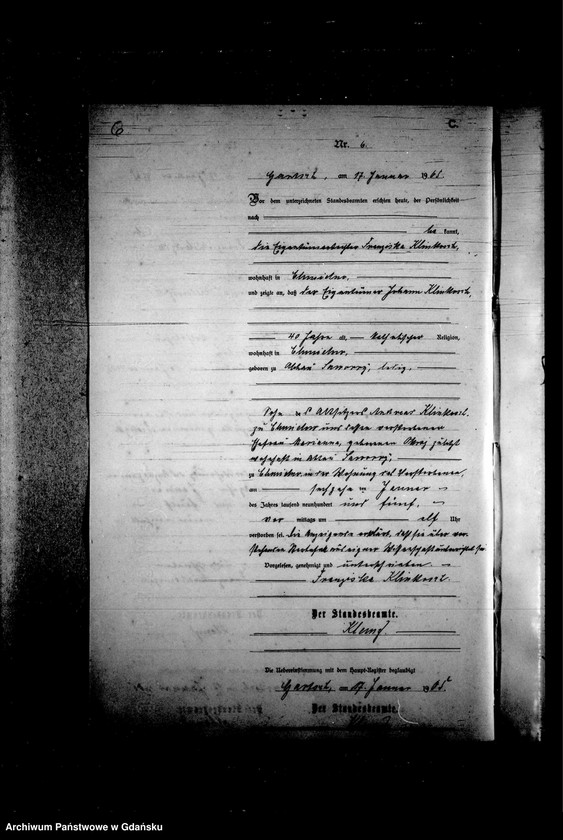 6
C.
Nr. 6.
Gartsch, am 17. Januar 1905
Vor dem unterzeichneten Standesbeamten erschien heute, der Persönlichkeit
nach
be kannt,
die Eigentümertochter Franziska Klinkosch,
wohnhaft in Chmielno,
und zeigte an, daß der Eigentümer Johann Klinkosch,
40 Jahre alt, katholischer Religion,
wohnhaft in Chmielno,
geboren zu ledig,
Sohn des Altsitzers Andreas Klinkosch
zu Chmielno und dessen verstorbenen
Ehefrau Marianna, geborenen zuletzt
wohnhaft in
zu Chmielno in der Wohnung des Verstorbenen,
am sechszehn ten Januar
des Jahres tausend neunhundert und fünf,
vor mittags um elf Uhr
verstorben sei. Die Anzeigende erklärt, daß sie über vor-
stehenden Sterbefall aus eigener Wissenschaft unterrichtet sei.
Vorgelesen, genehmigt und unterschrieben
Franziska Klinkosch.
Der Standesbeamte.
Die Uebereinstimmung mit dem Haupt-Register beglaubigt
Gartsch, am 17. Januar 1905.
Der Standesbeamte.
Archiwum Państwowe w Gdańsku